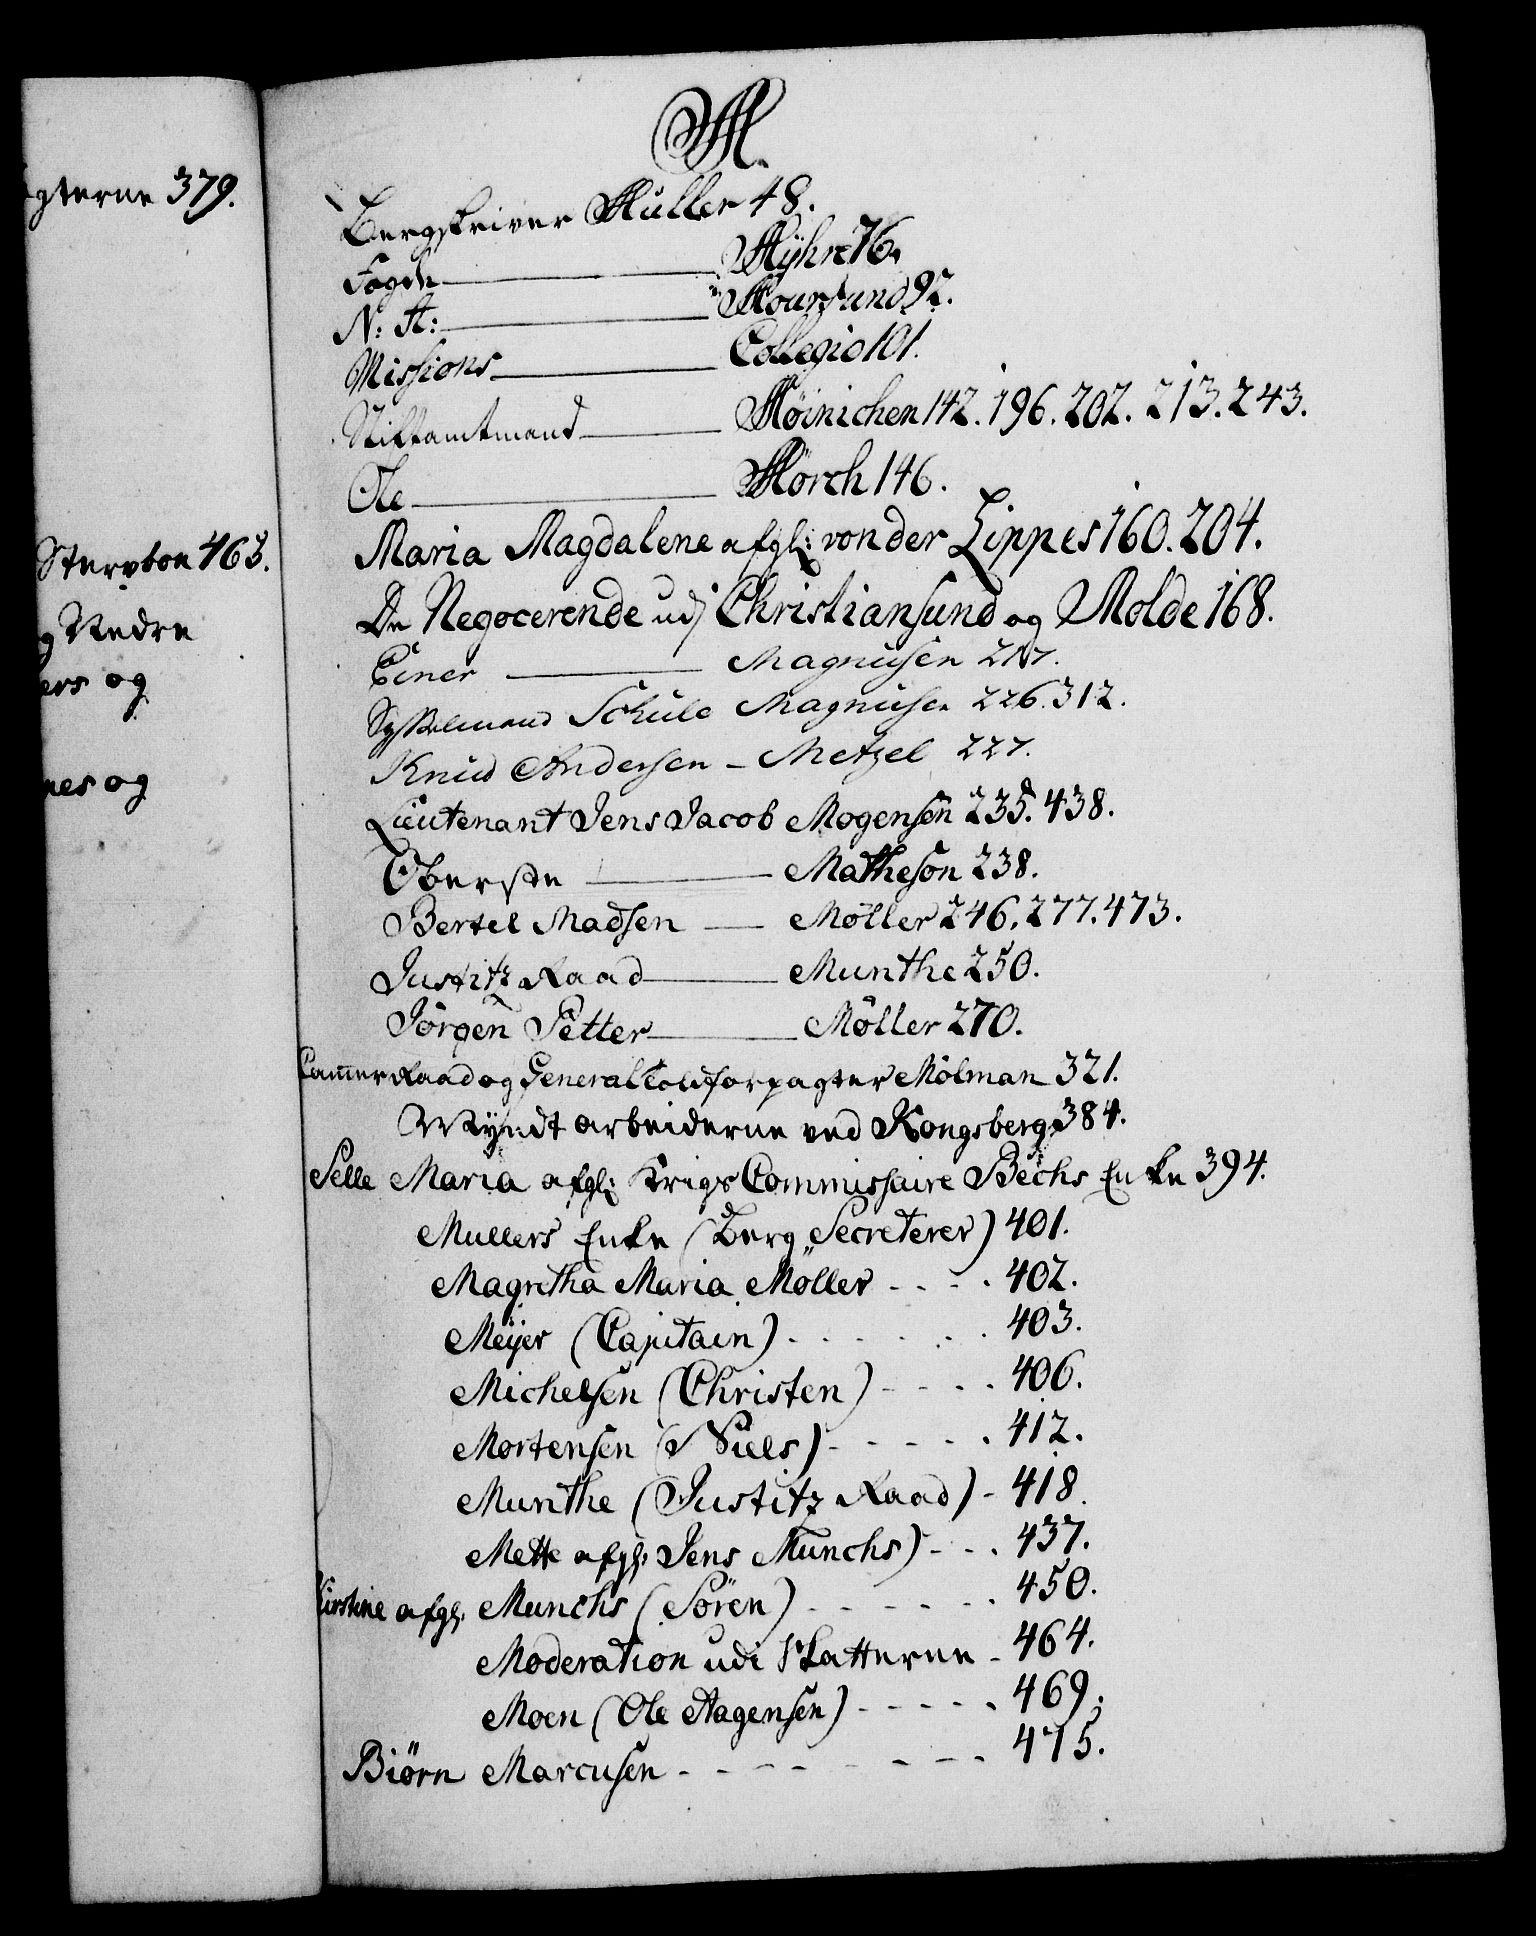 gterne 379.
Stervboe 463.
g Nedre
ers og
nes og
M.
Bergskriver Müller 48.
Fogde Mÿhre 76.
N: A: Moursund 92.
Missions Collegio 101.
Stiftamtmand Möinichen 142. 196. 202. 213. 243.
Ole Mörch 146.
Maria Magdalene afgl: von der Lippes 160. 204.
De Negocerende udj Christiansund og Molde 168.
Einer Magnusen 217.
Sysselmand Schule Magnusen 226. 312.
Knud Andersen - Metzel 227.
Lieutenant Jens Jacob Mogensen 235. 438.
Oberste Matheson 238.
Bertel Madsen Möller 246. 277. 473.
Justitz Raad Munthe 250.
Jörgen Petter Möller 270.
Cammer Raad og General Toldforpagter Mölman 321.
Myndt arbeiderne ved Kongsberg 384.
Selle Maria afgl: Krigs Commissaire Bechs Enke 394.
Mullers Enke (Berg Secreterer) 401.
Magretha Maria Möller - - - . 402.
Meijer (Capitain) . - - - - . 403.
Michelsen (Christen) - - - . 406.
Mortensen (Niels) - - - - . 412.
Munthe (Justitz Raad) - 418.
Mette afgl: Jens Munchs) - - . 437.
Kirstine afgl. Munchs (Sören) - - - - - . 450.
Moderation udi Skatterne - 464.
Moen (Ole Aagensen) - - - - . 469.
Biörn Marcusen - - - - - - - - 475.